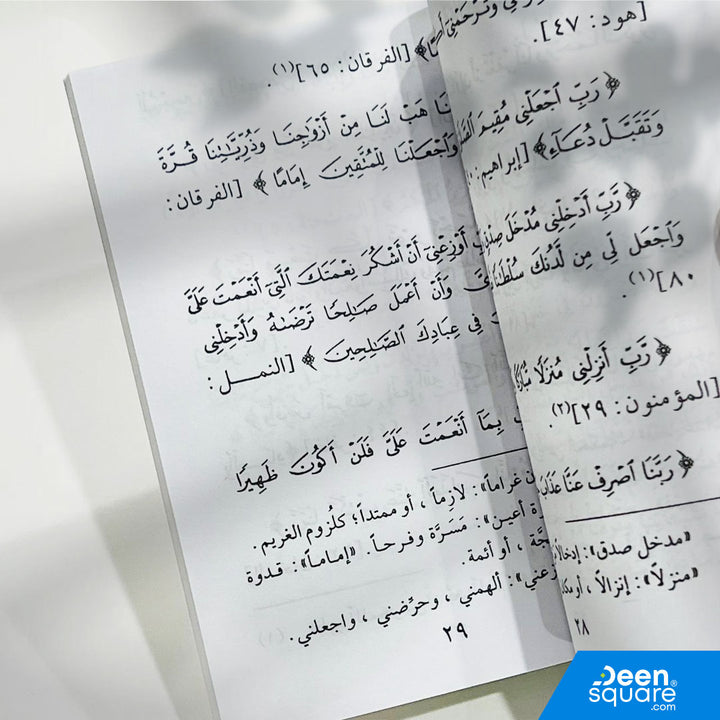 وَتَرْحَمْنِي
[هود: ٤٧].
﴿ رَبِّ اجْعَلْنِي مُقِيمَ
وَتَقَبَّلْ دُعَاءِ﴾ [إبراهيم:
﴿ رَبِّ أَدْخِلْنِي مُدْخَلَ صِدْقٍ
وَاجْعَل لِّي مِن لَّدُنكَ سُلْطَانًا
٨٠](١).
﴿ رَّبِّ أَنزِلْنِي مُنزَلًا مُّبَارَكًا
[المؤمنون: ٢٩](٢).
﴿ رَبَّنَا اصْرِفْ عَنَّا عَذَابَ
«مدخل صدق»: إدخالاً
«منزلاً»: إنزالاً ، أو
٢٨
[الفرقان: ٦٥](١).
هَبْ لَنَا مِنْ أَزْوَاجِنَا وَذُرِّيَّاتِنَا قُرَّةَ
وَاجْعَلْنَا لِلْمُتَّقِينَ إِمَامًا ﴾ [الفرقان:
أَوْزِعْنِي أَنْ أَشْكُرَ نِعْمَتَكَ الَّتِي أَنْعَمْتَ عَلَيَّ
وَأَنْ أَعْمَلَ صَالِحًا تَرْضَاهُ وَأَدْخِلْنِي
فِي عِبَادِكَ الصَّالِحِينَ ﴾ [النمـل :
بِمَا أَنْعَمْتَ عَلَيَّ فَلَنْ أَكُونَ ظَهِيرًا
غراماً»: لازِماً ، أو ممتداً؛ كلُزوم الغريم.
أعين»: مَسَرَّة وفرحاً. «إماماً»: قدوة
، أو أئمة.
ألهمني ، وحرِّضني ، واجعلني.
٢٩
Deen
square®
.com